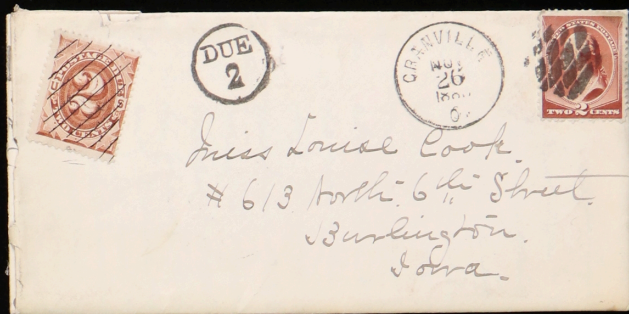 DUE
2
GRANVILLE
NOV
26
O.
TWO 2 CENTS
Miss Louise Cook.
# 613 North. 6th Street.
Burlington.
Iowa.